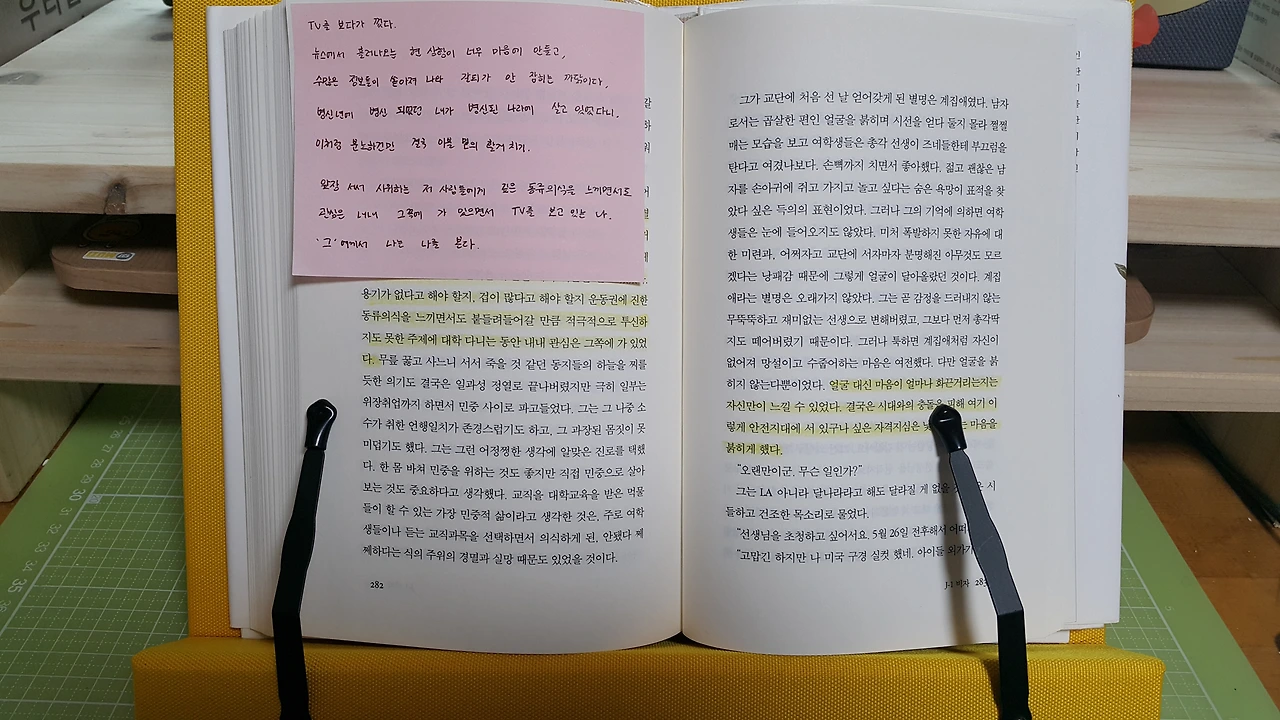 TV를 보다가 껐다.
뉴스에서 흘러나오는 현 상황이 너무 마음에 안들고,
수많은 정보들이 쏟아져 나와 갈피가 안 잡히는 까닭이다.
병신년에 병신 되었던 내가 병신된 나라에 살고 있었다니.
이처럼 분노하건만 결국 아픈 몸의 핑계 치기.
앞장 서서 시위하는 저 사람들에게 깊은 동류의식을 느끼면서도
관심은 내내 그쪽에 가 있으면서 TV를 보고 있는 나.
'그'에게서 나는 나를 본다.
용기가 없다고 해야 할지, 겁이 많다고 해야 할지 운동권에 진한
동류의식을 느끼면서도 붙들려들어갈 만큼 적극적으로 투신하
지도 못한 주제에 대학 다니는 동안 내내 관심은 그쪽에 가 있었
다. 무릎 꿇고 사느니 서서 죽을 것 같던 동지들의 하늘을 찌를
듯한 의기도 결국은 일과성 정열로 끝나버렸지만 극히 일부는
위장취업까지 하면서 민중 사이로 파고들었다. 그는 그 나중 소
수가 취한 언행일치가 존경스럽기도 하고, 그 과장된 몸짓이 못
미덥기도 했다. 그는 그런 어정쩡한 생각에 알맞은 진로를 택했
다. 한 몸 바쳐 민중을 위하는 것도 좋지만 직접 민중으로 살아
보는 것도 중요하다고 생각했다. 교직을 대학교육을 받은 먹물
들이 할 수 있는 가장 민중적 삶이라고 생각한 것은, 주로 여학
생들이나 듣는 교직과목을 선택하면서 의식하게 된, 안됐다 쩨
쩨하다는 식의 주위의 경멸과 실망 때문도 있었을 것이다.
282
그가 교단에 처음 선 날 얻어갖게 된 별명은 계집애였다. 남자
로서는 곱살한 편인 얼굴을 붉히며 시선을 얻다 둘지 몰라 쩔쩔
매는 모습을 보고 여학생들은 총각 선생이 즈네들한테 부끄럼을
탄다고 여겼나보다. 손뼉까지 치면서 좋아했다. 젊고 괜찮은 남
자를 손아귀에 쥐고 가지고 놀고 싶다는 숨은 욕망이 표적을 찾
았다 싶은 득의의 표현이었다. 그러나 그의 기억에 의하면 여학
생들은 눈에 들어오지도 않았다. 미처 폭발하지 못한 자유에 대
한 미련과, 어쩌자고 교단에 서자마자 분명해진 아무것도 모르
겠다는 낭패감 때문에 그렇게 얼굴이 달아올랐던 것이다. 계집
애라는 별명은 오래가지 않았다. 그는 곧 감정을 드러내지 않는
무뚝뚝하고 재미없는 선생으로 변해버렸고, 그보다 먼저 총각딱
지도 떼어버렸기 때문이다. 그러나 툭하면 계집애처럼 자신이
없어져 망설이고 수줍어하는 마음은 여전했다. 다만 얼굴을 붉
히지 않는다뿐이었다. 얼굴 대신 마음이 얼마나 화끈거리는지는
자신만이 느낄 수 있었다. 결국은 시대와의 충돌을 피해 여기 이
렇게 안전지대에 서 있구나 싶은 자격지심은 마음을
붉히게 했다.
"오랜만이군, 무슨 일인가?"
그는 LA 아니라 달나라라고 해도 달라질 게 없을 시
들하고 건조한 목소리로 물었다.
"선생님을 초청하고 싶어서요. 5월 26일 전후해서
"고맙긴 하지만 나 미국 구경 실컷 했네. 아이들
J-1 비자 283